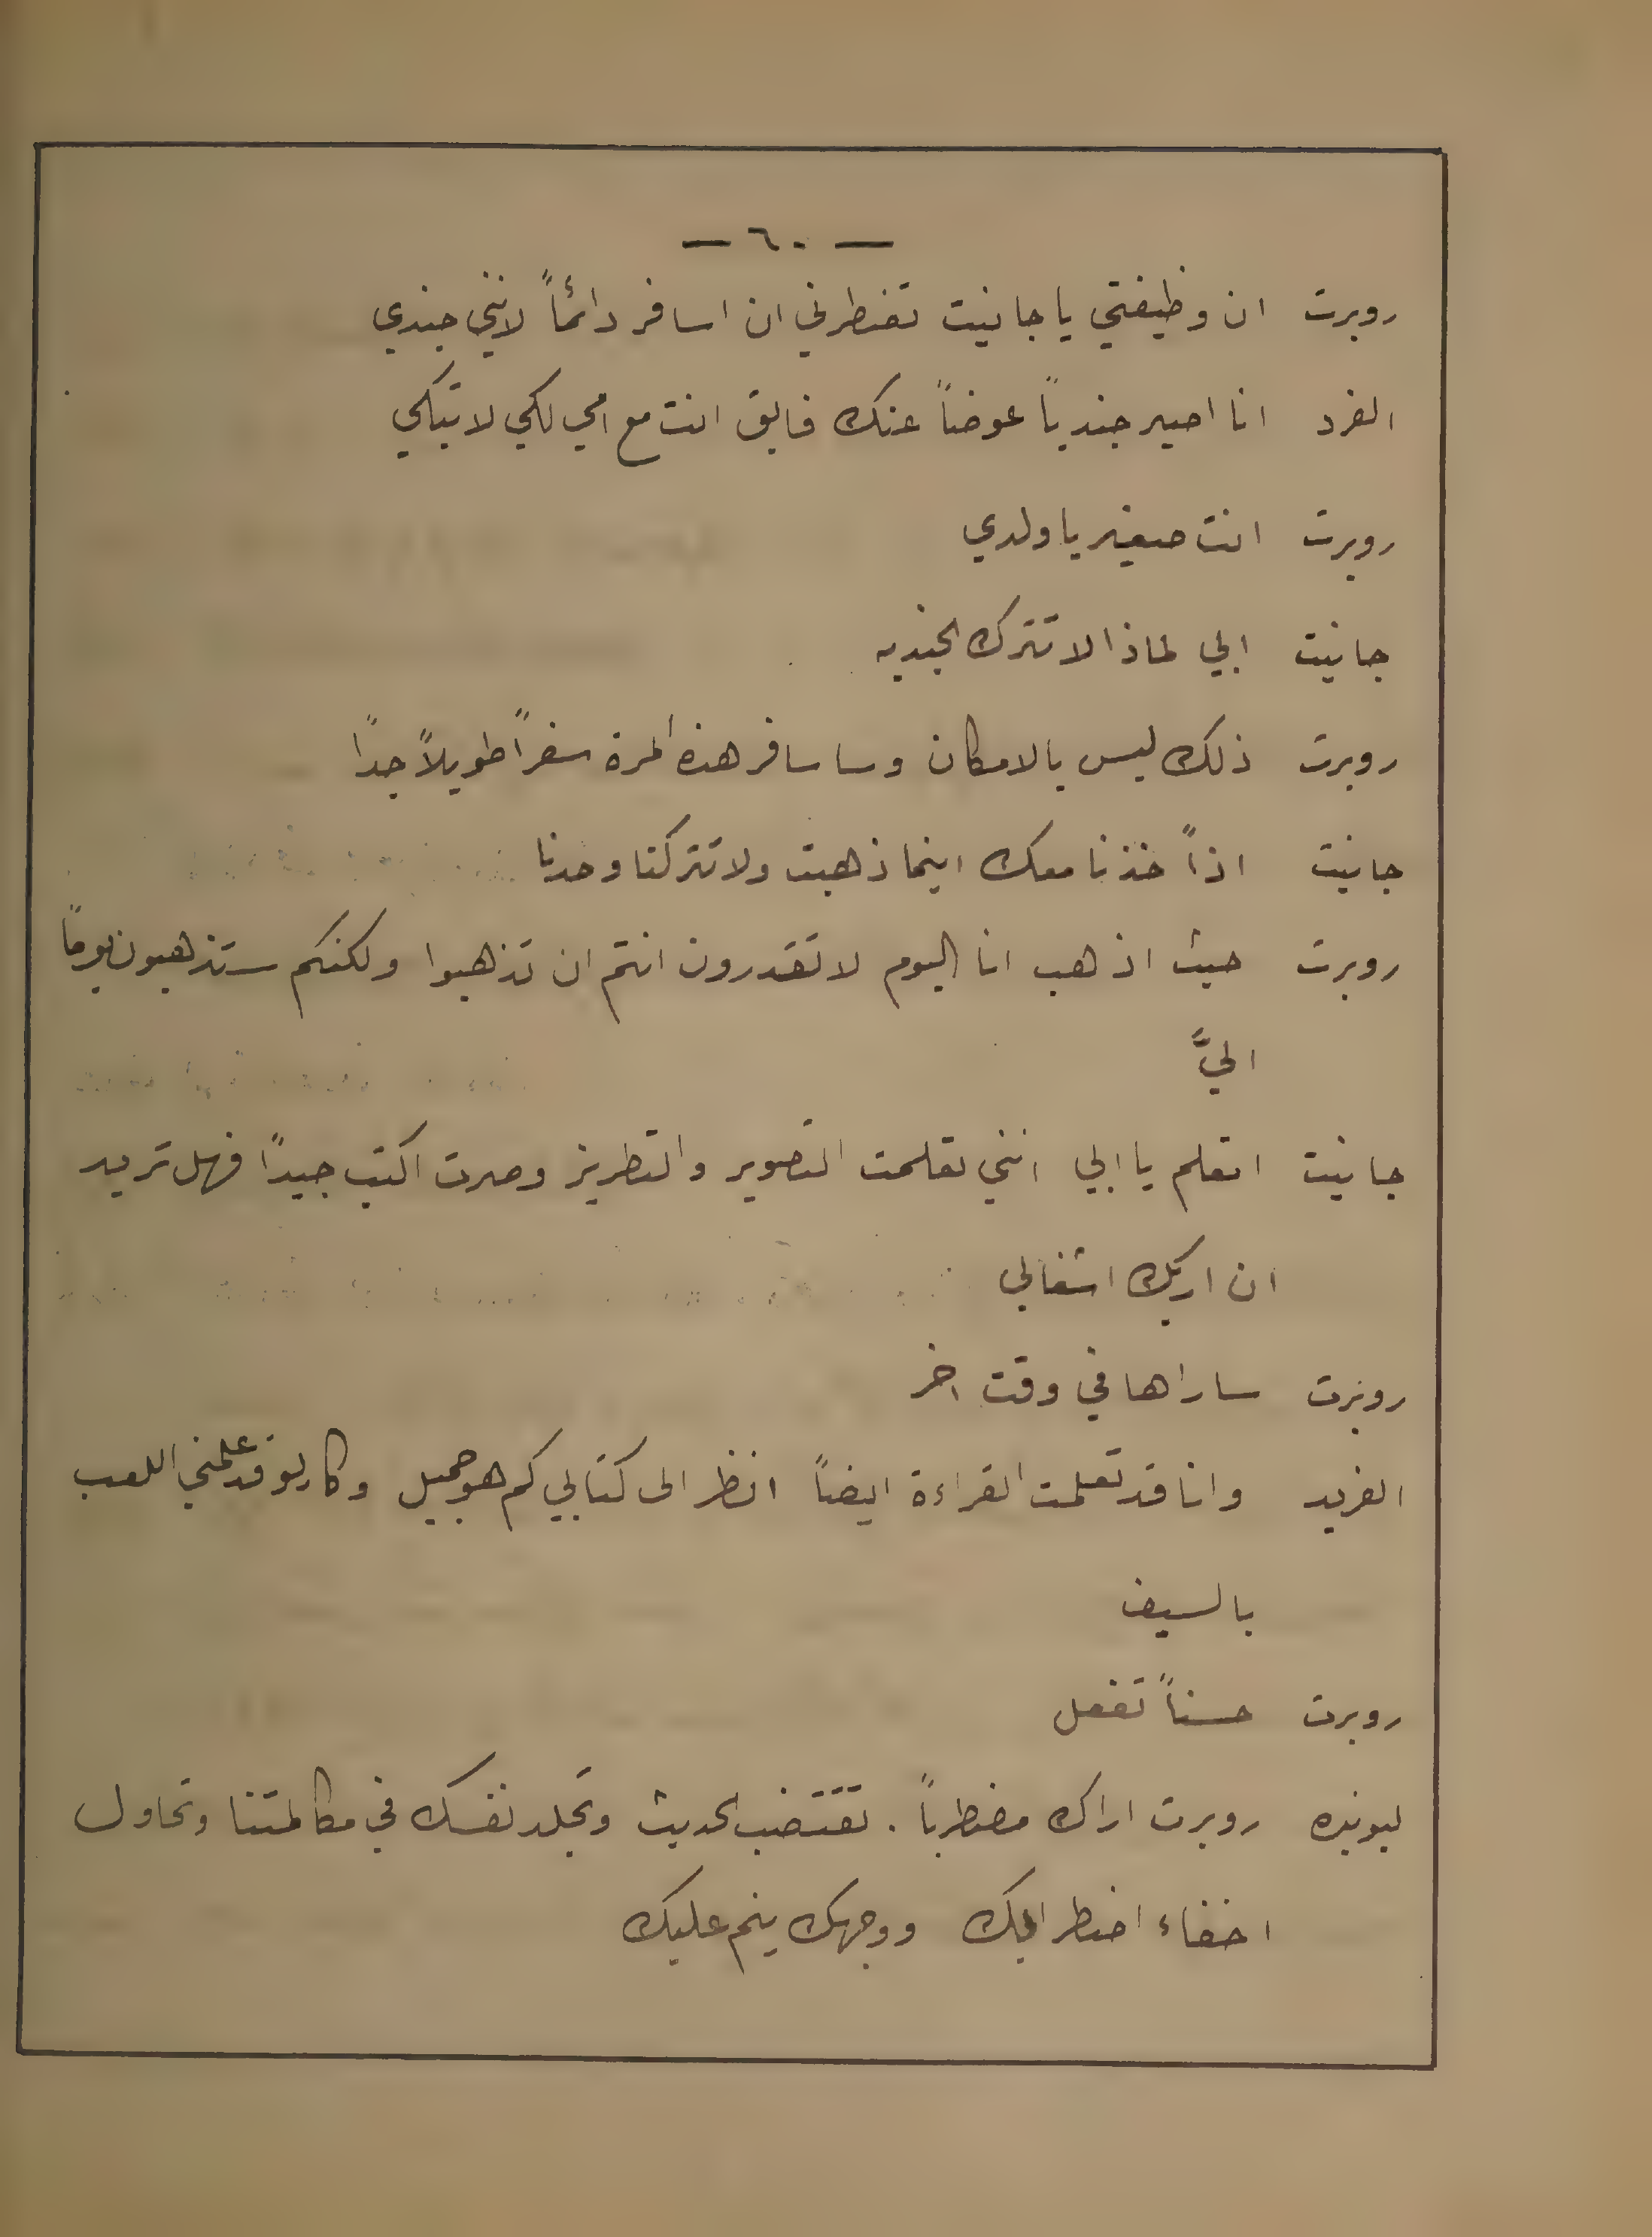 — ٦٠ —
روبرت ان وظيفتي يا جانيت تضطرني ان اسافر دائماً لانني جندي
الفرد انا اصير جندياً عوضاً عنك فابق انت مع امي لكي لا تبكي
روبرت انت صغير يا ولدي
جانيت ابي لماذا لا تترك الجنديه
روبرت ذلك ليس بالامكان وساسافر هذه المرة سفراً طويلاً جداً
جانيت اذاً خذنا معك اينما ذهبت ولا تتركنا وحدنا
روبرت حيث اذهب انا اليوم لا تقدرون انتم ان تذهبوا ولكنكم ستذهبون يوماً
اليَّ
جانيت اتعلم يا ابي انني تعلمت التصوير والتطريز وصرت اكتب جيداً فهل تريد
ان اريك اشغالي
روبرت ساراها في وقت اخر
الفريد وانا قد تعلمت القراءة ايضاً انظر الى كتابي كم هو جميل وكارلو قد علمني اللعب
بالسيف
روبرت حسناً تفعل
ليونيده روبرت اراك مضطرباً . تقتضب الحديث وتجلد نفسك في مكالمتنا وتحاول
اخفاء اضطرابك ووجهك ينم عليك